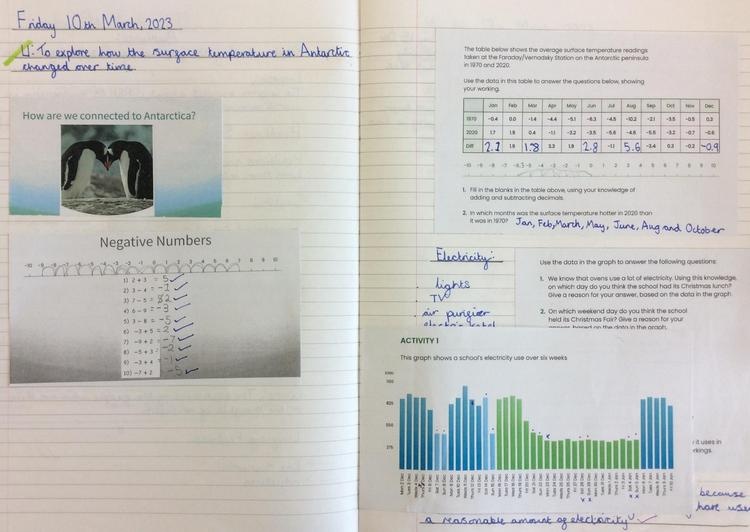 Friday 10th March, 2023
LI: To explore how the surface temperature in Antarctic
changed over time.
How are we connected to Antarctica?
Negative Numbers
-10 -9 -8 -7 -6 -5 -4 -3 -2 -1 0 1 2 3 4 5 6 7 8 9 10
1) 2 + 3 = 5
2) 3 - 4 = -1
3) 7 - 5 = 2
4) 6 - 9 = -3
5) 3 - 8 = -5
6) -3 + 5 = 2
7) -9 + 2 = -7
8) -5 + 3 = -2
9) -3 + 4 = -1
10) -7 + 2 -5
The table below shows the average surface temperature readings
taken at the Faraday/Vernadsky Station on the Antarctic peninsula
in 1970 and 2020.
Use the data in this table to answer the questions below, showing
your working.
Jan Feb Mar Apr May Jun Jul Aug Sep Oct Nov Dec
1970 -0.4 0.0 -1.4 -4.4 -5.1 -6.3 -4.5 -10.2 -2.1 -3.5 -0.5 0.3
2020 1.7 1.8 0.4 -1.1 -3.2 -3.5 -5.6 -4.6 -5.5 -3.2 -0.7 -0.6
Diff 2.1 1.8 1.8 3.3 1.9 2.8 -1.1 5.6 -3.4 0.3 -0.2 -0.9
1. Fill in the blanks in the table above, using your knowledge of
adding and subtracting decimals.
2. In which months was the surface temperature hotter in 2020 than
it was in 1970? Jan, Feb, March, May, June, Aug and October
Electricity:
lights
TV
air purifier
Use the data in the graph to answer the following questions:
1. We know that ovens use a lot of electricity. Using this knowledge,
on which day do you think the school had its Christmas lunch?
Give a reason for your answer, based on the data in the graph.
2. On which weekend day do you think the school
held its Christmas Fair? Give a reason for your
answer, based on the data in the graph.
ACTIVITY 1
This graph shows a school's electricity use over six weeks
it uses in
because
have used
a reasonable amount of electricity